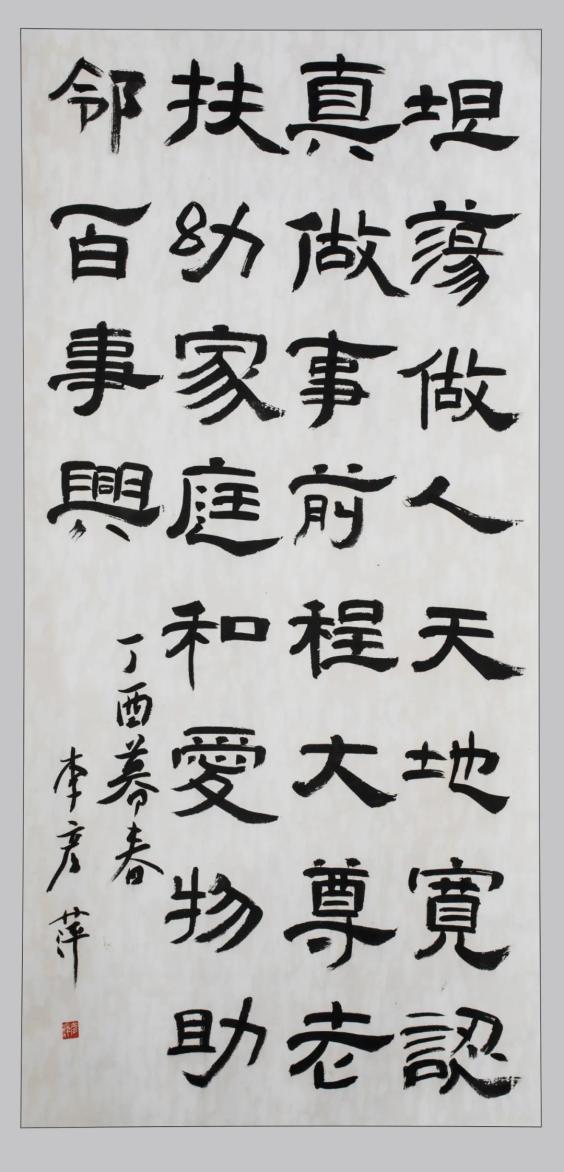 坦蕩做人天地寬認
真做事前程大尊老
扶幼家庭和愛物助
邻百事興
丁酉暮春
李彦萍